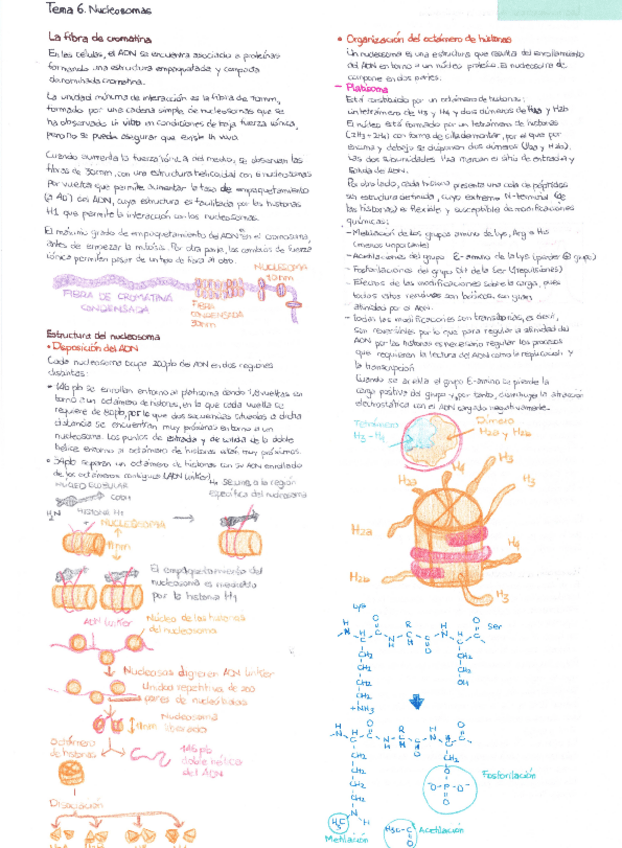 Tema 6. Nucleosomas
La fibra de cromatina
En las células, el ADN se encuentra asociado a proteínas
formando una estructura empaquetada y compacta
denominada cromatina.
La unidad mínima de interacción es la fibra de 10nm,
formado por una cadena simple de nucleosomas que se
ha observado in vitro en condiciones de baja fuerza iónica,
pero no se puede asegurar que existe in vivo.
Cuando aumenta la fuerza iónica del medio, se observan las
fibras de 30nm, con una estructura helicoidal con 6 nucleosomas
por vuelta que permite aumentar la tasa de empaquetamiento
(a 40) del ADN, cuya estructura es facilitada por las histonas
H1 que permite la interacción con los nucleosomas.
El máximo grado de empaquetamiento del ADN es en el cromosoma,
antes de empezar la mitosis. Por otra parte, los cambios de fuerza
iónica permiten pasar de un tipo de fibra al otro.
NUCLEOSOMA
10nm
FIBRA DE CROMATINA
CONDENSADA
FIBRA
CONDENSADA
30nm
Estructura del nucleosoma
• Disposición del ADN
Cada nucleosoma ocupa 200pb de ADN en dos regiones
distintas:
• 146pb se enrollan entorno al platisoma dando 1,8 vueltas en
torno a un octámero de histonas, en la que cada vuelta se
requiere de 80pb, por lo que dos secuencias situadas a dicha
distancia se encuentran muy próximas entorno a un
nucleosoma. Los puntos de entrada y de salida de la doble
hélice entorno al octámero de histonas están muy próximos.
• 54pb separan un octámero de histonas con su ADN enrollado
de los octámeros contiguos (ADN linker).
NÚCLEO GLOBULAR
H1 se une a la región
específica del nucleosoma
COOH
HISTONA H1
H2N
NUCLEOSOMA
11nm
El empaquetamiento del
nucleosoma es mediado
por la histona H1
ADN linker
Núcleo de las histonas
del nucleosoma
Nucleasas digieren ADN linker
Unidad repetitiva de 200
pares de nucleótidos
Nucleosoma
liberado
11nm
Octámero
de histonas
146pb
doble hélice
del ADN
Disociación
• Organización del octámero de histonas
Un nucleosoma es una estructura que resulta del enrollamiento
del ADN entorno a un núcleo proteico. El nucleosoma se
compone en dos partes:
- Platisoma
Está constituido por un octámero de histonas:
un tetrámero de H3 y H4 y dos dímeros de H2a y H2b.
El núcleo está formado por un tetrámero de histonas
(2H3+2H4) con forma de silla de montar, por el que por
encima y debajo se disponen dos dímeros (H2a y H2b).
Las dos subunidades H2a marcan el sitio de entrada y
salida del ADN.
Por otro lado, cada histona presenta una cola de péptidos
sin estructura definida, cuyo extremo N-terminal (de
las histonas) es flexible y susceptible de modificaciones
químicas:
- Metilación de los grupos amino de Lys, Arg o His
(menos importante)
- Acetilaciones del grupo E-amino de la Lys (pierde ⊕ grupo)
- Fosforilaciones del grupo OH de la Ser
- Efectos de las modificaciones sobre la carga, pues
todos estos residuos son básicos, con gran
afinidad por el ADN.
- Todas las modificaciones son transitorias, es decir,
son reversibles por lo que para regular la afinidad del
ADN por las histonas es necesario regular los procesos
que requieran la lectura del ADN como la replicación y
la transcripción
Cuando se acetila el grupo E-amino se pierde la
carga positiva del grupo y, por tanto, disminuye la atracción
electrostática con el ADN cargado negativamente.
Tetrámero
H3-H4
Dímero
H2a y H2b
H2a
H4
H3
H3
H2a
H4
H2b
H3
Lys
Ser
Fosforilación
Metilación
Acetilación